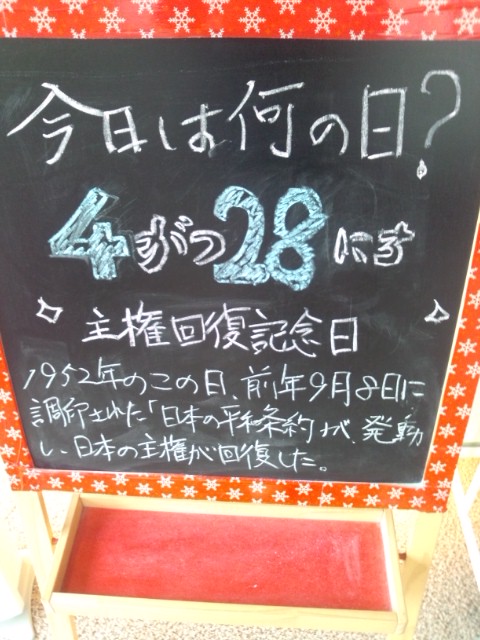 今日は何の日?
4がつ28にち
主権回復記念日
1952年のこの日、前年9月8日に
調印された「日本の平和条約」が、発動
し、日本の主権が回復した。